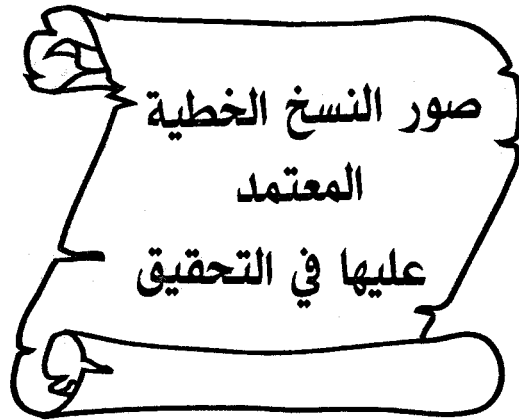 صور النسخ الخطية
المعتمد
عليها في التحقيق